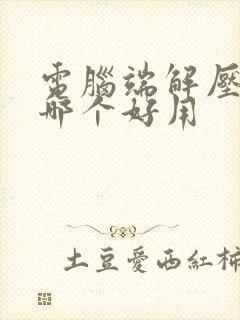 電腦端解壓
哪个好用
土豆愛西紅柿